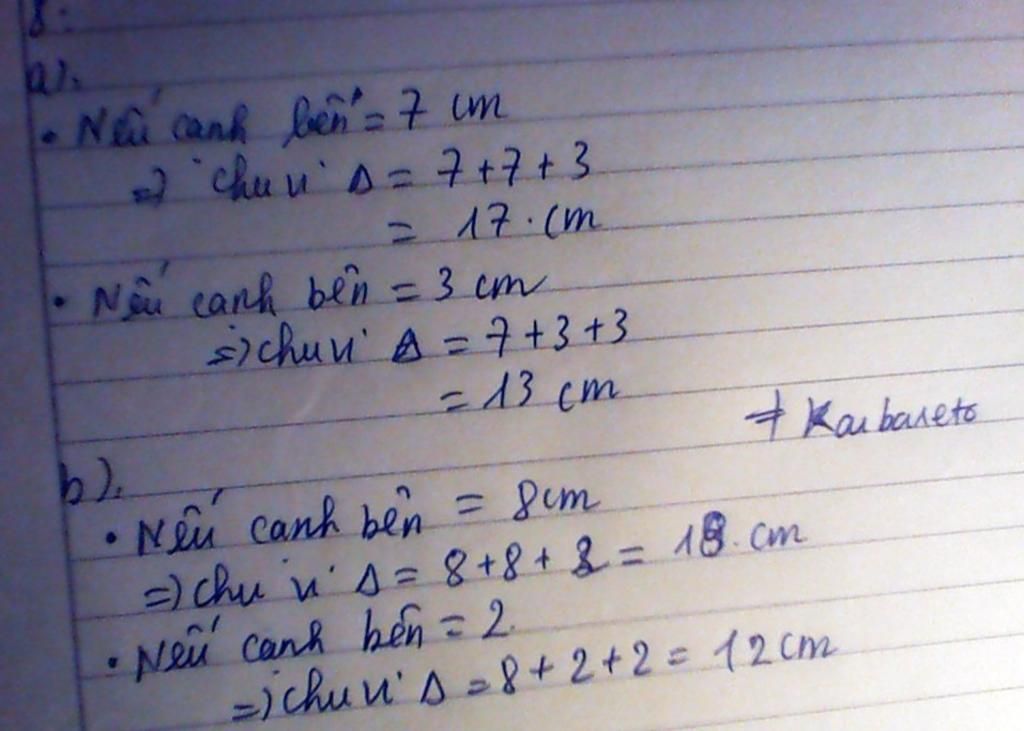 8.
a).
• Nếu canh bên = 7 cm
=> chu vi Δ = 7+7+3
= 17. cm
• Nếu canh bên = 3 cm
=> chu vi Δ = 7+3+3
= 13 cm
b).
• Nếu canh bên = 8cm
=> chu vi Δ = 8+8+2 = 18. cm
• Nếu canh bên = 2.
=> chu vi Δ = 8+2+2 = 12cm